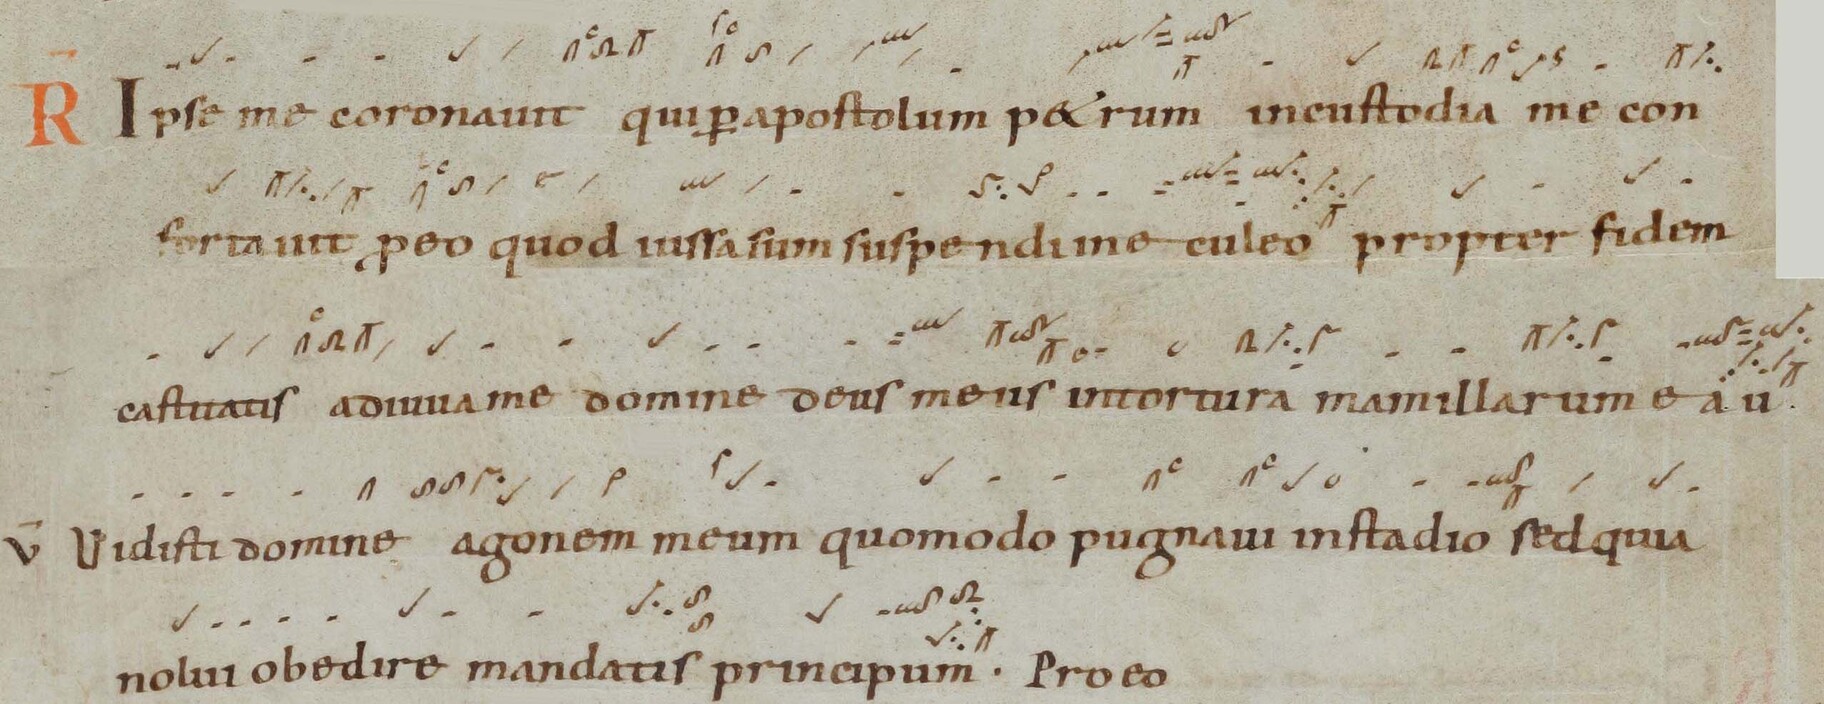 R̄ Ipse me coronauit qui ꝑ apostolum p&rum in custodia me con
fortauit pro eo quod iussa sum suspendi in eculeo propter fidem
castitatis adiuua me domine deus meus in tortura mamillarum e a u.
V̄ Vidisti domine agonem meum quomodo pugnaui in stadio sed quia
nolui obedire mandatis principum. Pro eo